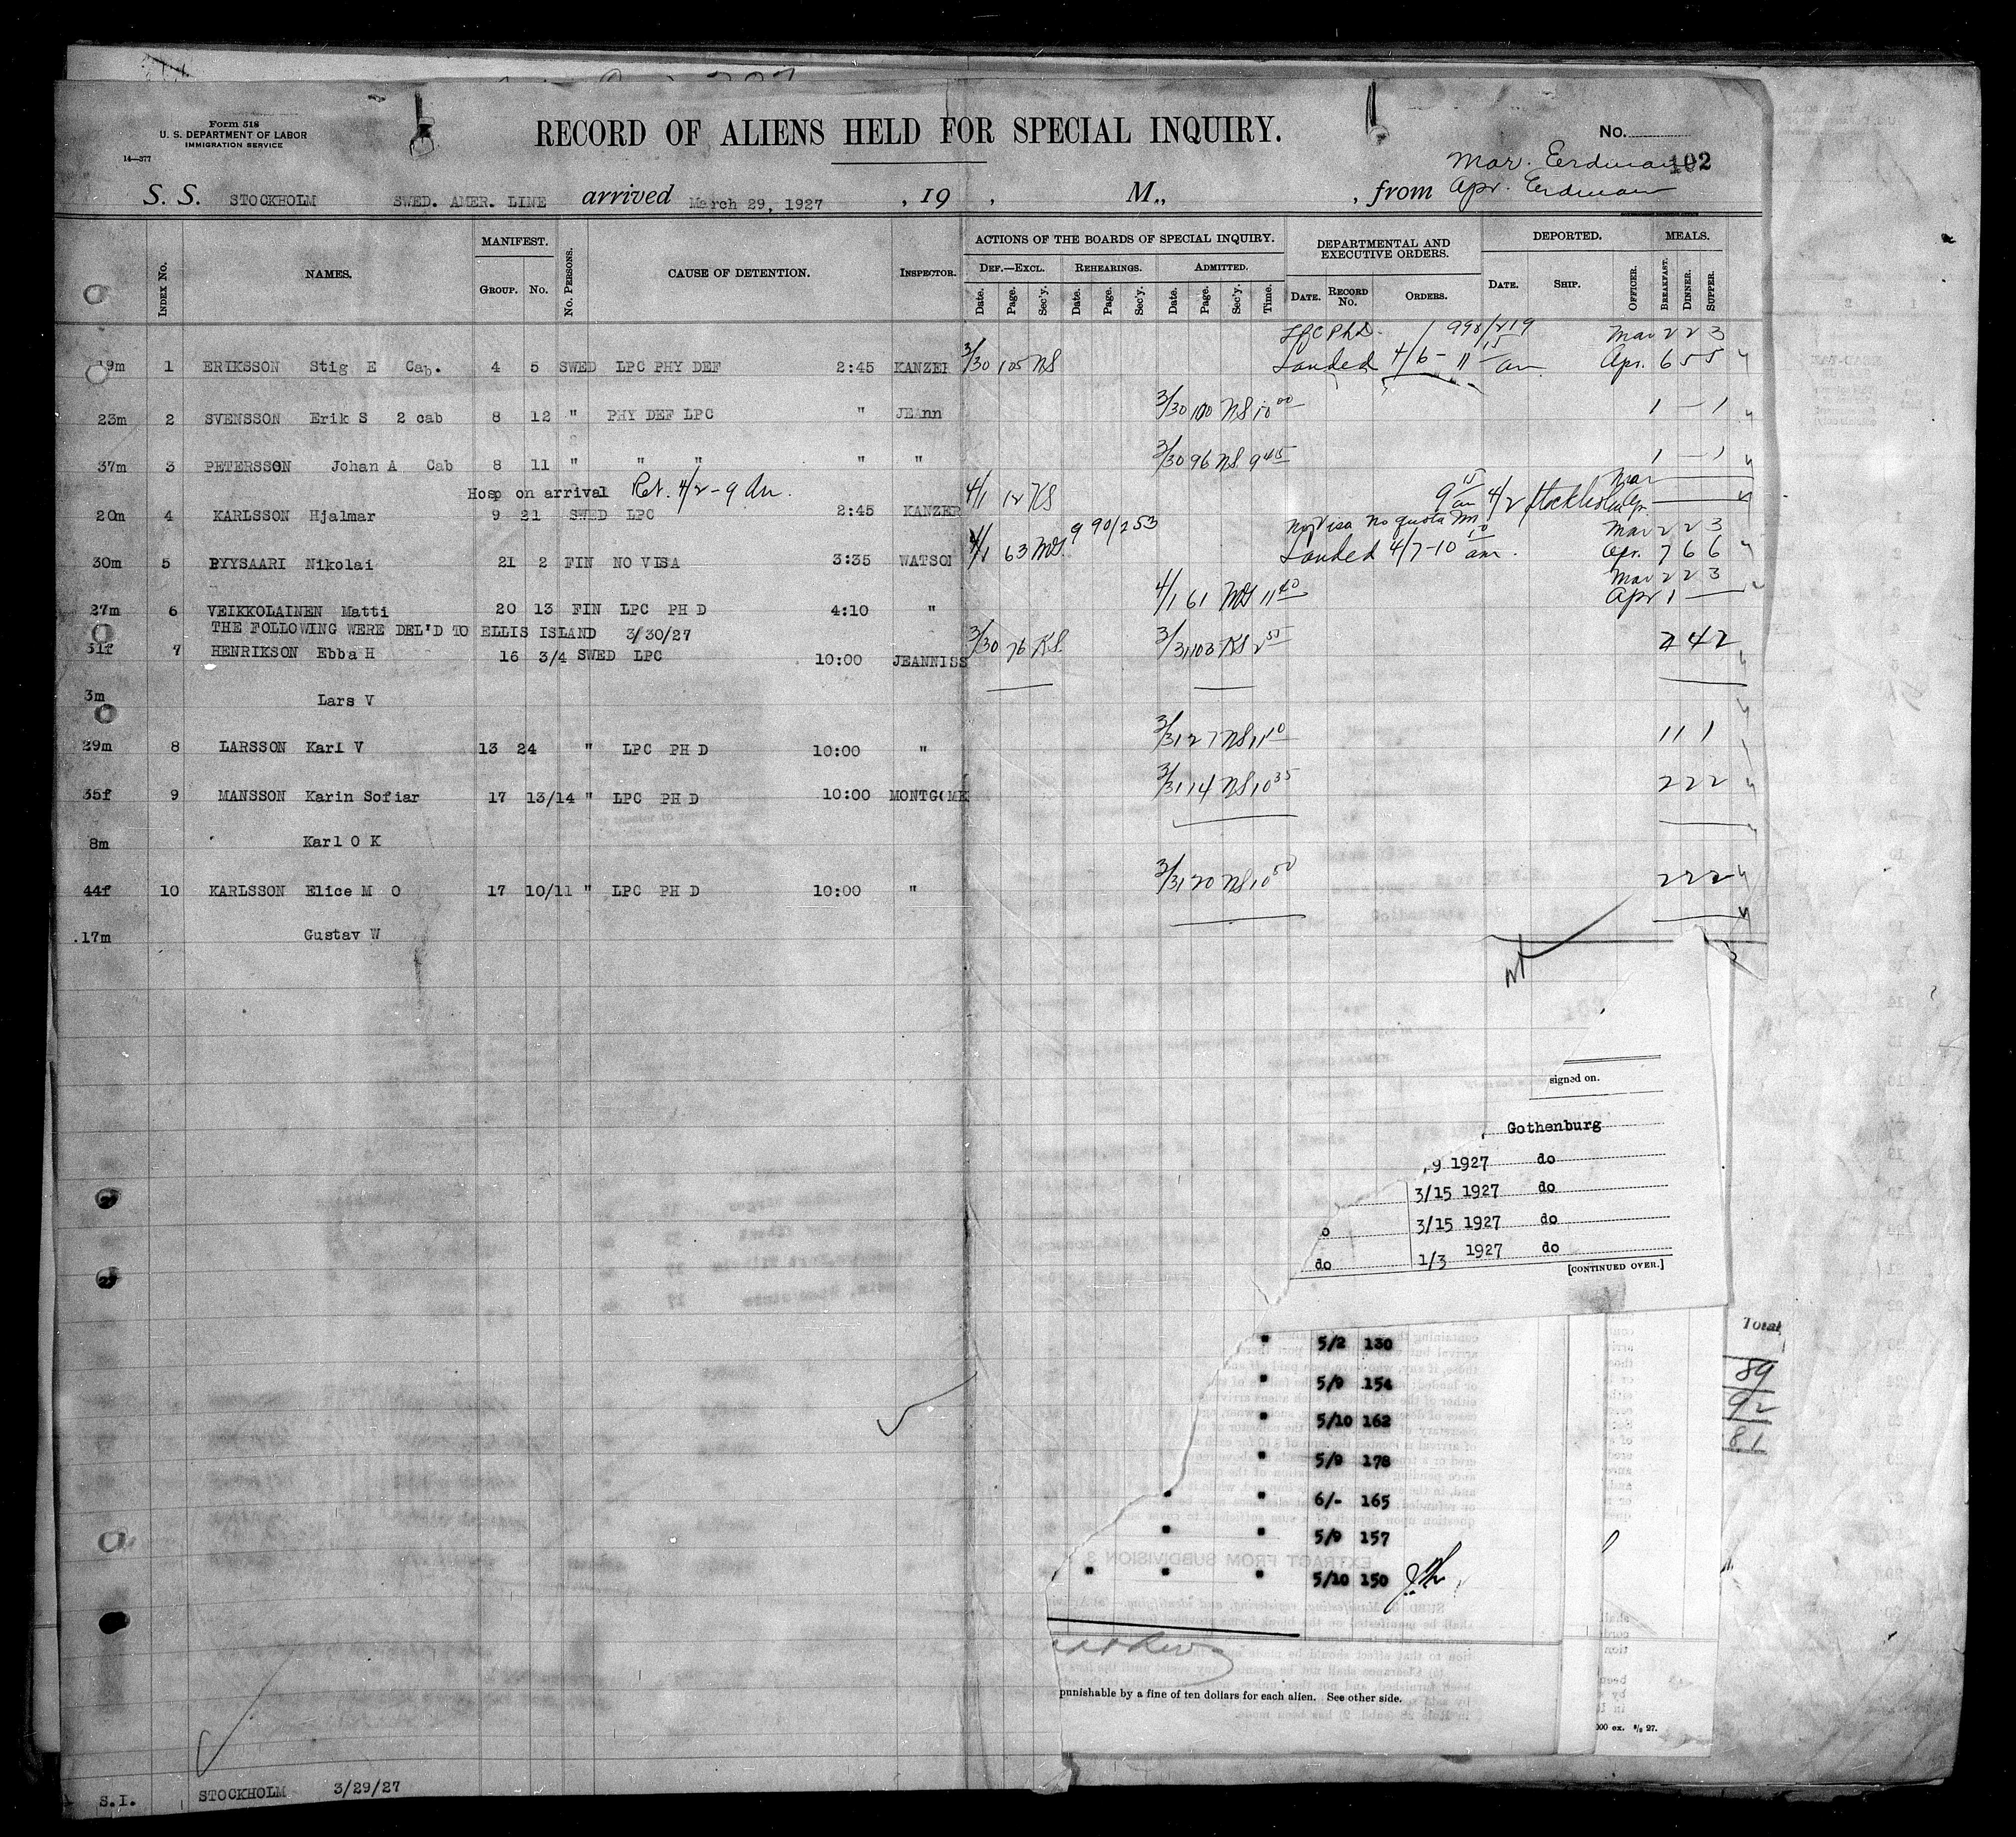 Form 518
U. S. DEPARTMENT OF LABOR
IMMIGRATION SERVICE
14—377
RECORD OF ALIENS HELD FOR SPECIAL INQUIRY.
No.
102
Mar. Erdman
S. S. STOCKHOLM SWED. AMER. LINE arrived March 29, 1927 , 19 , M., , from Apr. Erdman
INDEX No. NAMES. MANIFEST. GROUP. No. No. PERSONS. CAUSE OF DETENTION. INSPECTOR.
ACTIONS OF THE BOARDS OF SPECIAL INQUIRY. DEF.—EXCL. REHEARINGS. ADMITTED.
Date. Page. Sec'y. Date. Page. Sec'y. Date. Page. Sec'y. Time.
DEPARTMENTAL AND EXECUTIVE ORDERS. DATE. RECORD No. ORDERS.
DEPORTED. DATE. SHIP. OFFICER. MEALS. BREAKFAST. DINNER. SUPPER.
998/219 Mar 2 2 3
19m 1 ERIKSSON Stig E Cab. 4 5 SWED LPC PHY DEF 2:45 KANZER 3/30 105 NS Landed 4/6 - 11 15 am Apr. 6 5 5
23m 2 SVENSSON Erik S 2 cab 8 12 " PHY DEF LPC " JEAnn 3/30 100 NS 10 00 1 — 1
37m 3 PETERSSON Johan A Cab 8 11 " " " " " 3/30 96 NS 9 45 1 — 1
Hosp on arrival Ret. 4/2 - 9 Am. Mar
20m 4 KARLSSON Hjalmar 9 21 SWED LPC 2:45 KANZER 4/1 12 KS 9 15 am 4/2 Stockholm Apr.
990/253 No Visa No quota Mar 2 2 3
30m 5 PYYSAARI Nikolai 21 2 FIN NO VISA 3:35 WATSON 4/1 63 MS. Landed 4/7 - 10 10 am. Apr. 7 6 6
Mar 2 2 3
27m 6 VEIKKOLAINEN Matti 20 13 FIN LPC PH D 4:10 " 4/1 61 MS 11 40 Apr 1 —
THE FOLLOWING WERE DEL'D TO ELLIS ISLAND 3/30/27
31f 7 HENRIKSON Ebba H 16 3/4 SWED LPC 10:00 JEANNISS 3/30 76 KS. 3/31 103 KS 2 55 2 4 2
3m Lars V
29m 8 LARSSON Karl V 13 24 " LPC PH D 10:00 " 3/31 27 NS 11 10 1 1 1
35f 9 MANSSON Karin Sofiar 17 13/14 " LPC PH D 10:00 MONTGOME 3/31 14 NS 10 35 2 2 2
8m Karl O K
44f 10 KARLSSON Elice M O 17 10/11 " LPC PH D 10:00 " 3/31 20 NS 10 50 2 2 2
.17m Gustav W
signed on.
Gothenburg
9 1927 do
3/15 1927 do
o 3/15 1927 do
do 1/3 1927 do
[CONTINUED OVER.]
Total
" 5/2 130
89
" 5/9 154
92
" 5/10 162
81
" 5/9 178
" " 6/- 165
" " 5/9 157
" " " 5/10 150
punishable by a fine of ten dollars for each alien. See other side.
S.I. STOCKHOLM 3/29/27